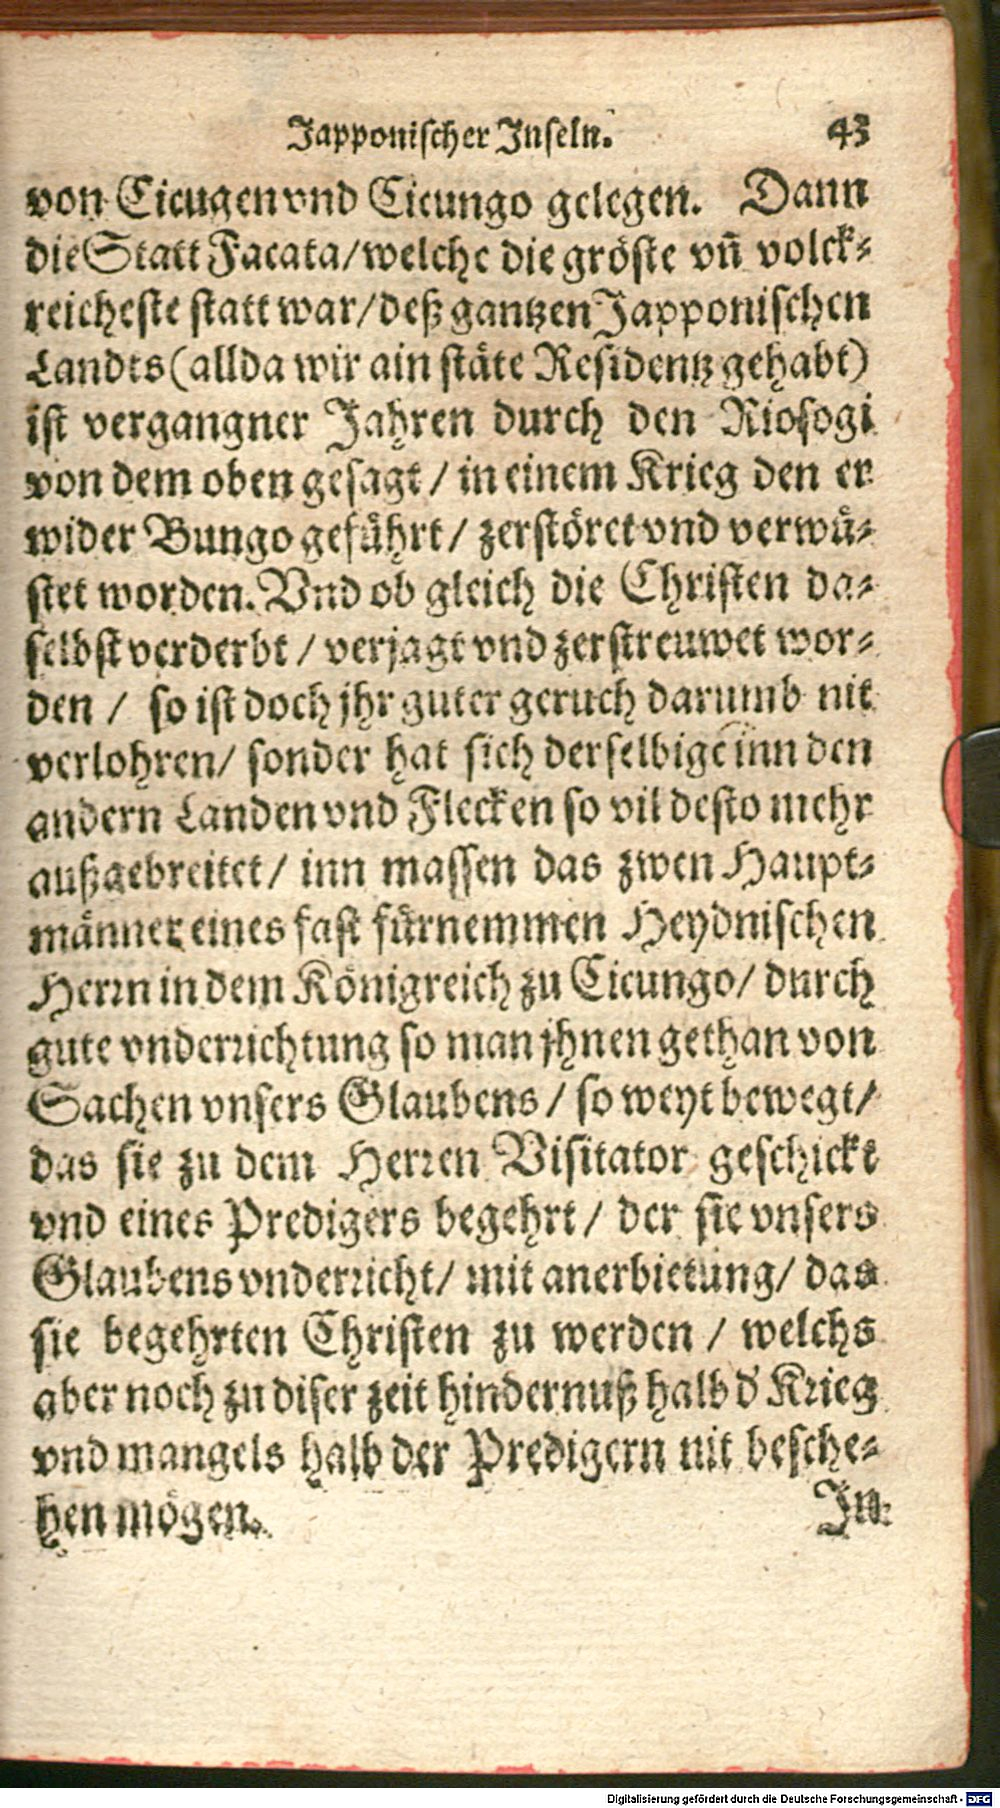 Japponischer Inseln. 43
von Cicugen vnd Cicungo gelegen. Dann
die Statt Facata/welche die gröste vñ volck-
reicheste statt war/deß gantzen Japponischen
Landts (allda wir ain stäte Residentz gehabt)
ist vergangner Jahren durch den Riosogi
von dem oben gesagt / in einem Krieg den er
wider Bungo geführt / zerstöret vnd verwü-
stet worden. Vnd ob gleich die Christen da-
selbst verderbt / verjagt vnd zerstreuwet wor-
den / so ist doch jhr guter geruch darumb nit
verlohren/ sonder hat sich derselbige inn den
andern Landen vnd Flecken so vil desto mehr
außgebreitet/ inn massen das zwen Haupt-
männer eines fast fürnemmen Heydnischen
Herrn in dem Königreich zu Cicungo/ durch
gute vnderrichtung so man jhnen gethan von
Sachen vnsers Glaubens / so weyt bewegt/
das sie zu dem Herren Visitator geschickt
vnd eines Predigers begehrt / der sie vnsers
Glaubens vnderricht/ mit anerbietung/ das
sie begehrten Christen zu werden / welchs
aber noch zu diser zeit hindernuß halb d' Krieg
vnd mangels halb der Predigern nit besche-
hen mögen. In-
Digitalisierung gefördert durch die Deutsche Forschungsgemeinschaft - DFG